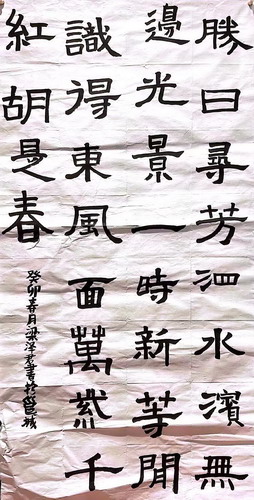 勝日尋芳泗水濱無
邊光景一時新等閒
識得東風面萬紫千
紅胡是春
癸卯春月梁洋書於邕城